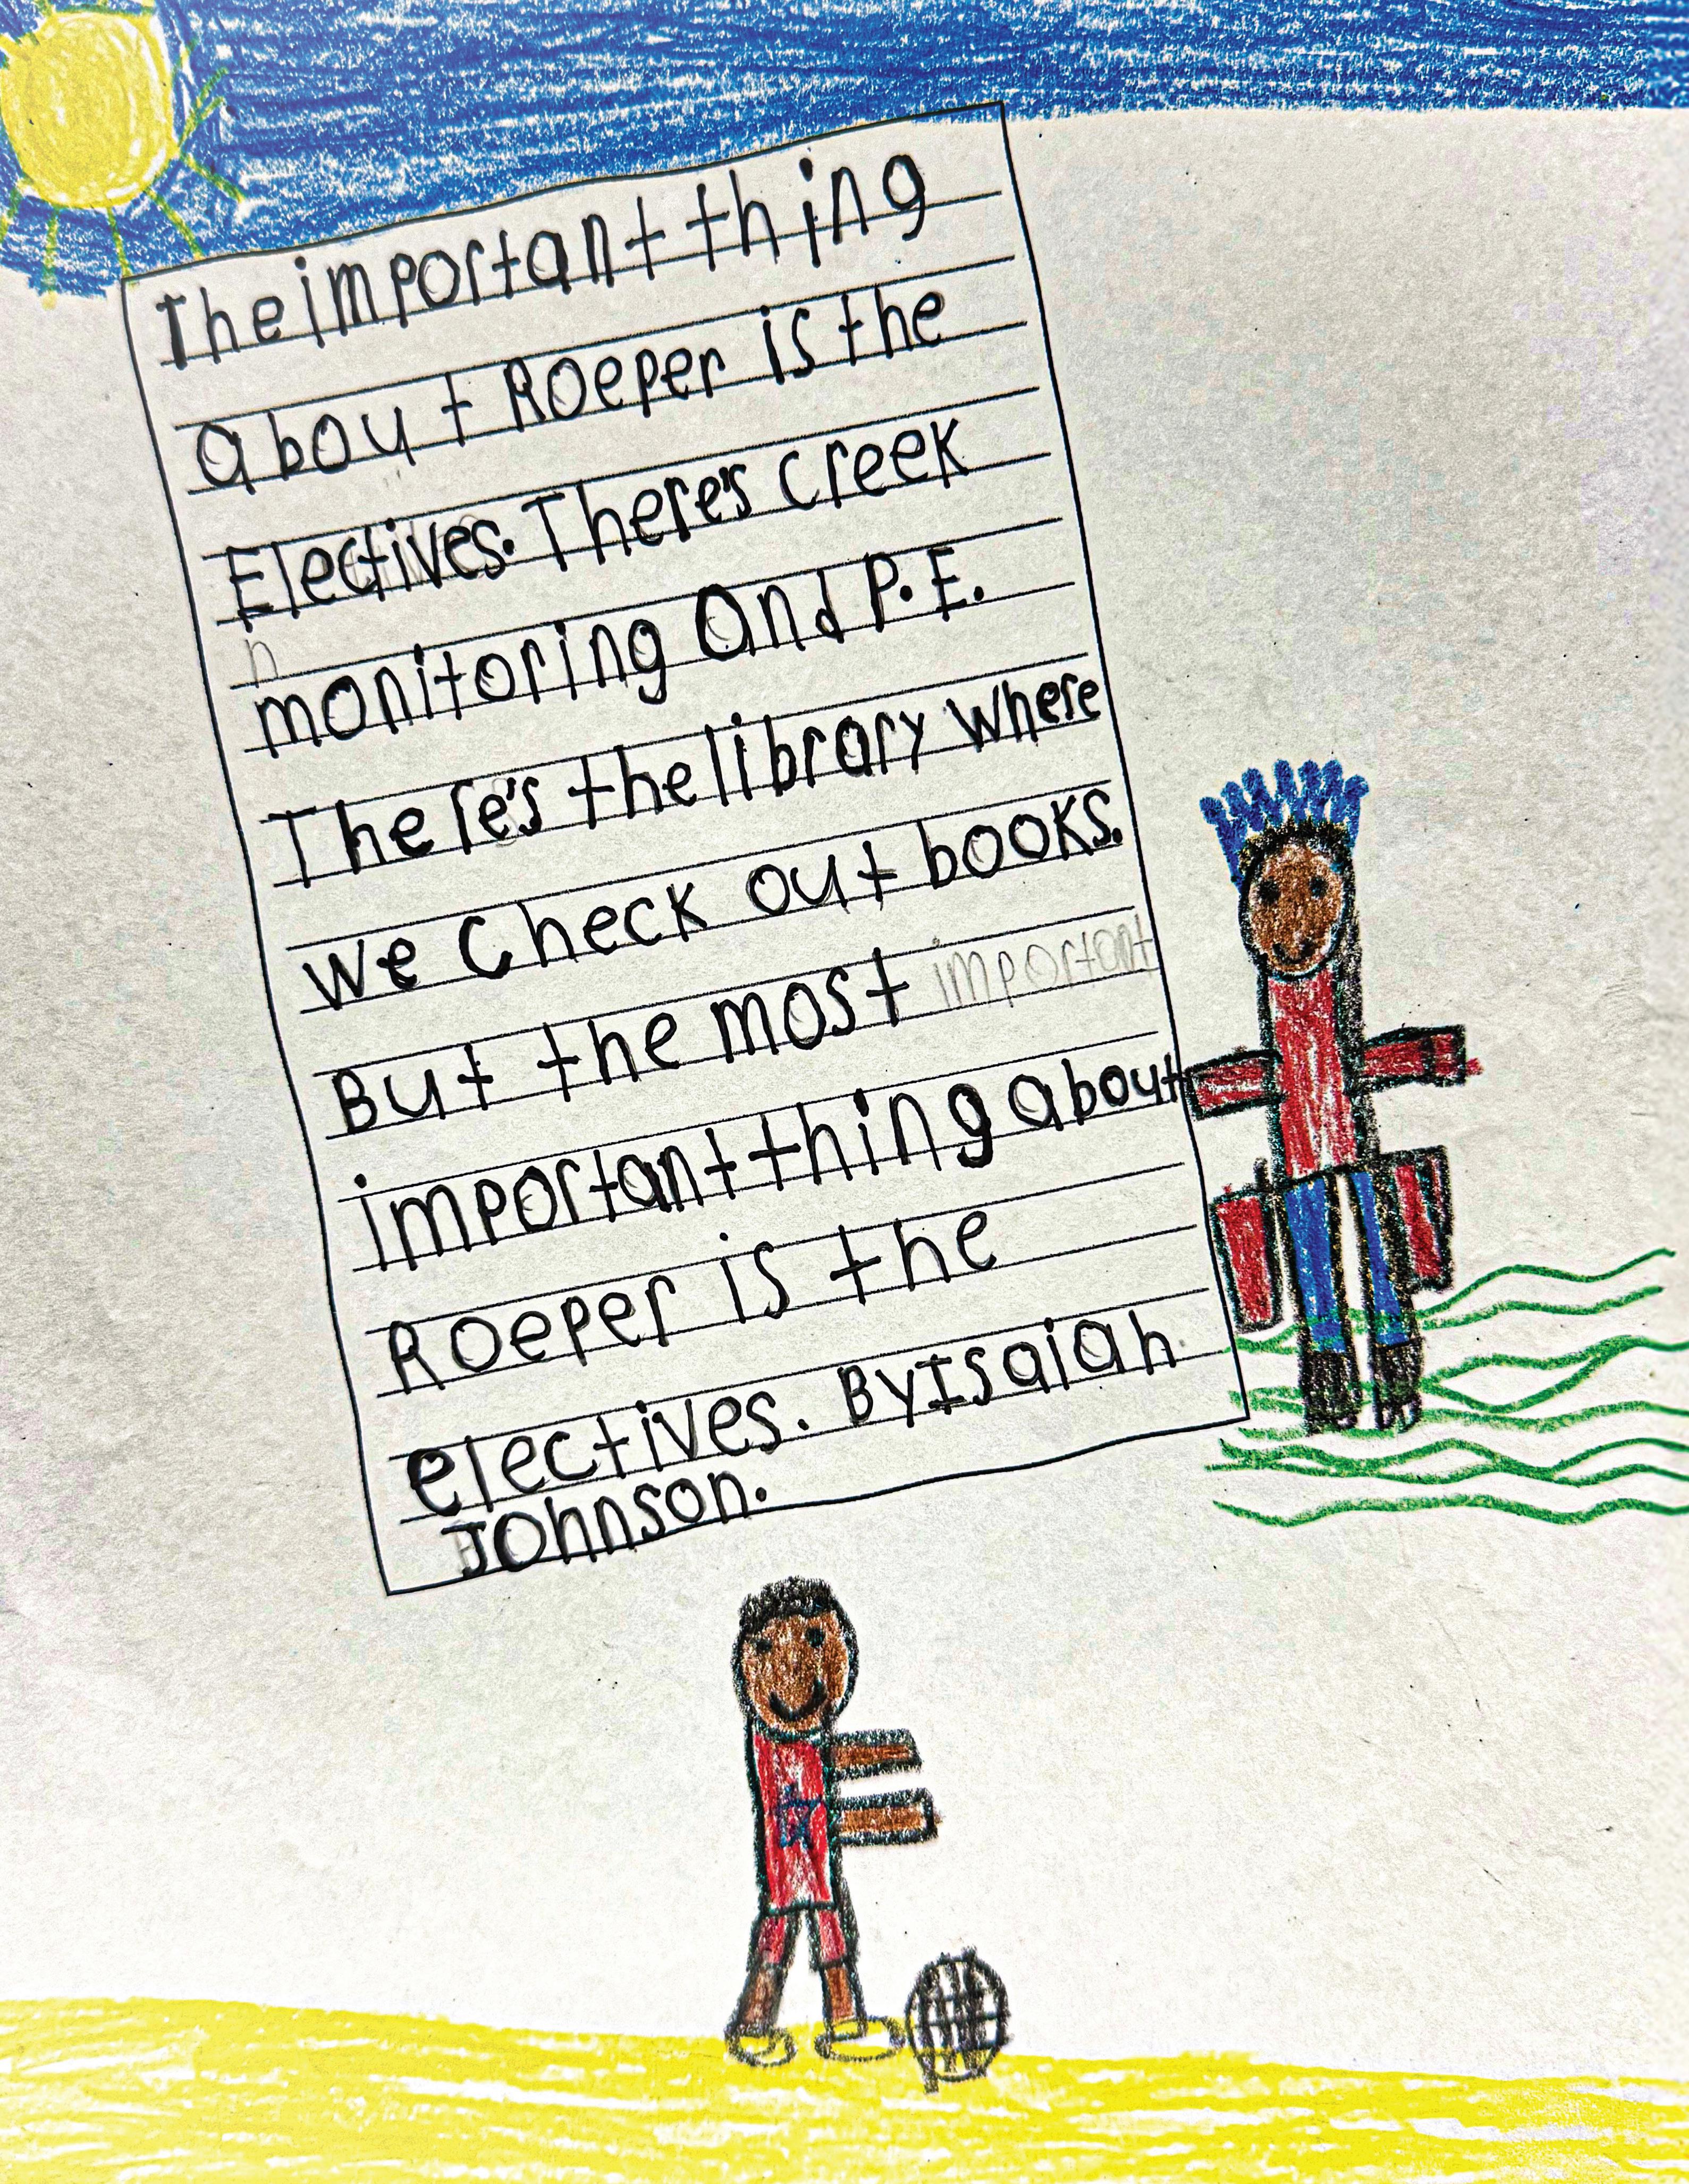 The important thing
about Roeper is the
Electives. There's creek
monitoring and P.E.
There's the library where
we check out books.
But the most important
important thing about
Roeper is the
electives. By Isaiah
Johnson.